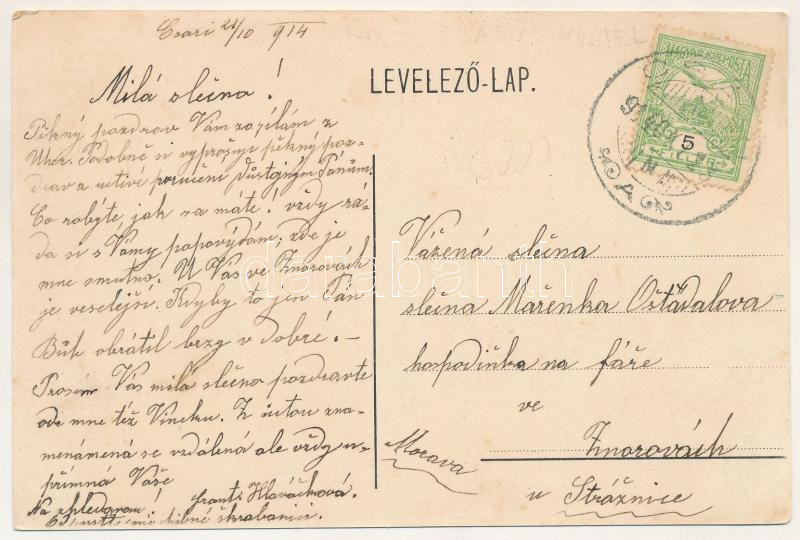 Csari 21/10 914
Milá slečna!
Pěkný pozdrav Vám zasílám z
Uher. Podobně si vyprošuji pěkný poz-
drav a uctivé poručení Důstojným Pánům.
Co robýte, jak sa máte! vždy rá-
da si s Vámy papovýdám, zde je
mne smutno. U Vás ve Znorovách
je veselejší. Kdyby to jen Pán
Bůh obrátil brzy v dobré! –
Prosím Vás milá slečno pozdravte
ode mne též Vincku. Z úctou zna-
menámená se vzdálená ale vždy u-
přímná Vaše
Na shledanou! Frant. Hlaváčková.
škrabanici.
LEVELEZŐ-LAP.
MAGYAR KIR. POSTA
5
FILLÉR
Vážená slečna
slečna Mařenka Ošťádalova
hospodiňka na fáře
ve
Znorovách
Morava
u Strážnice
darabanth